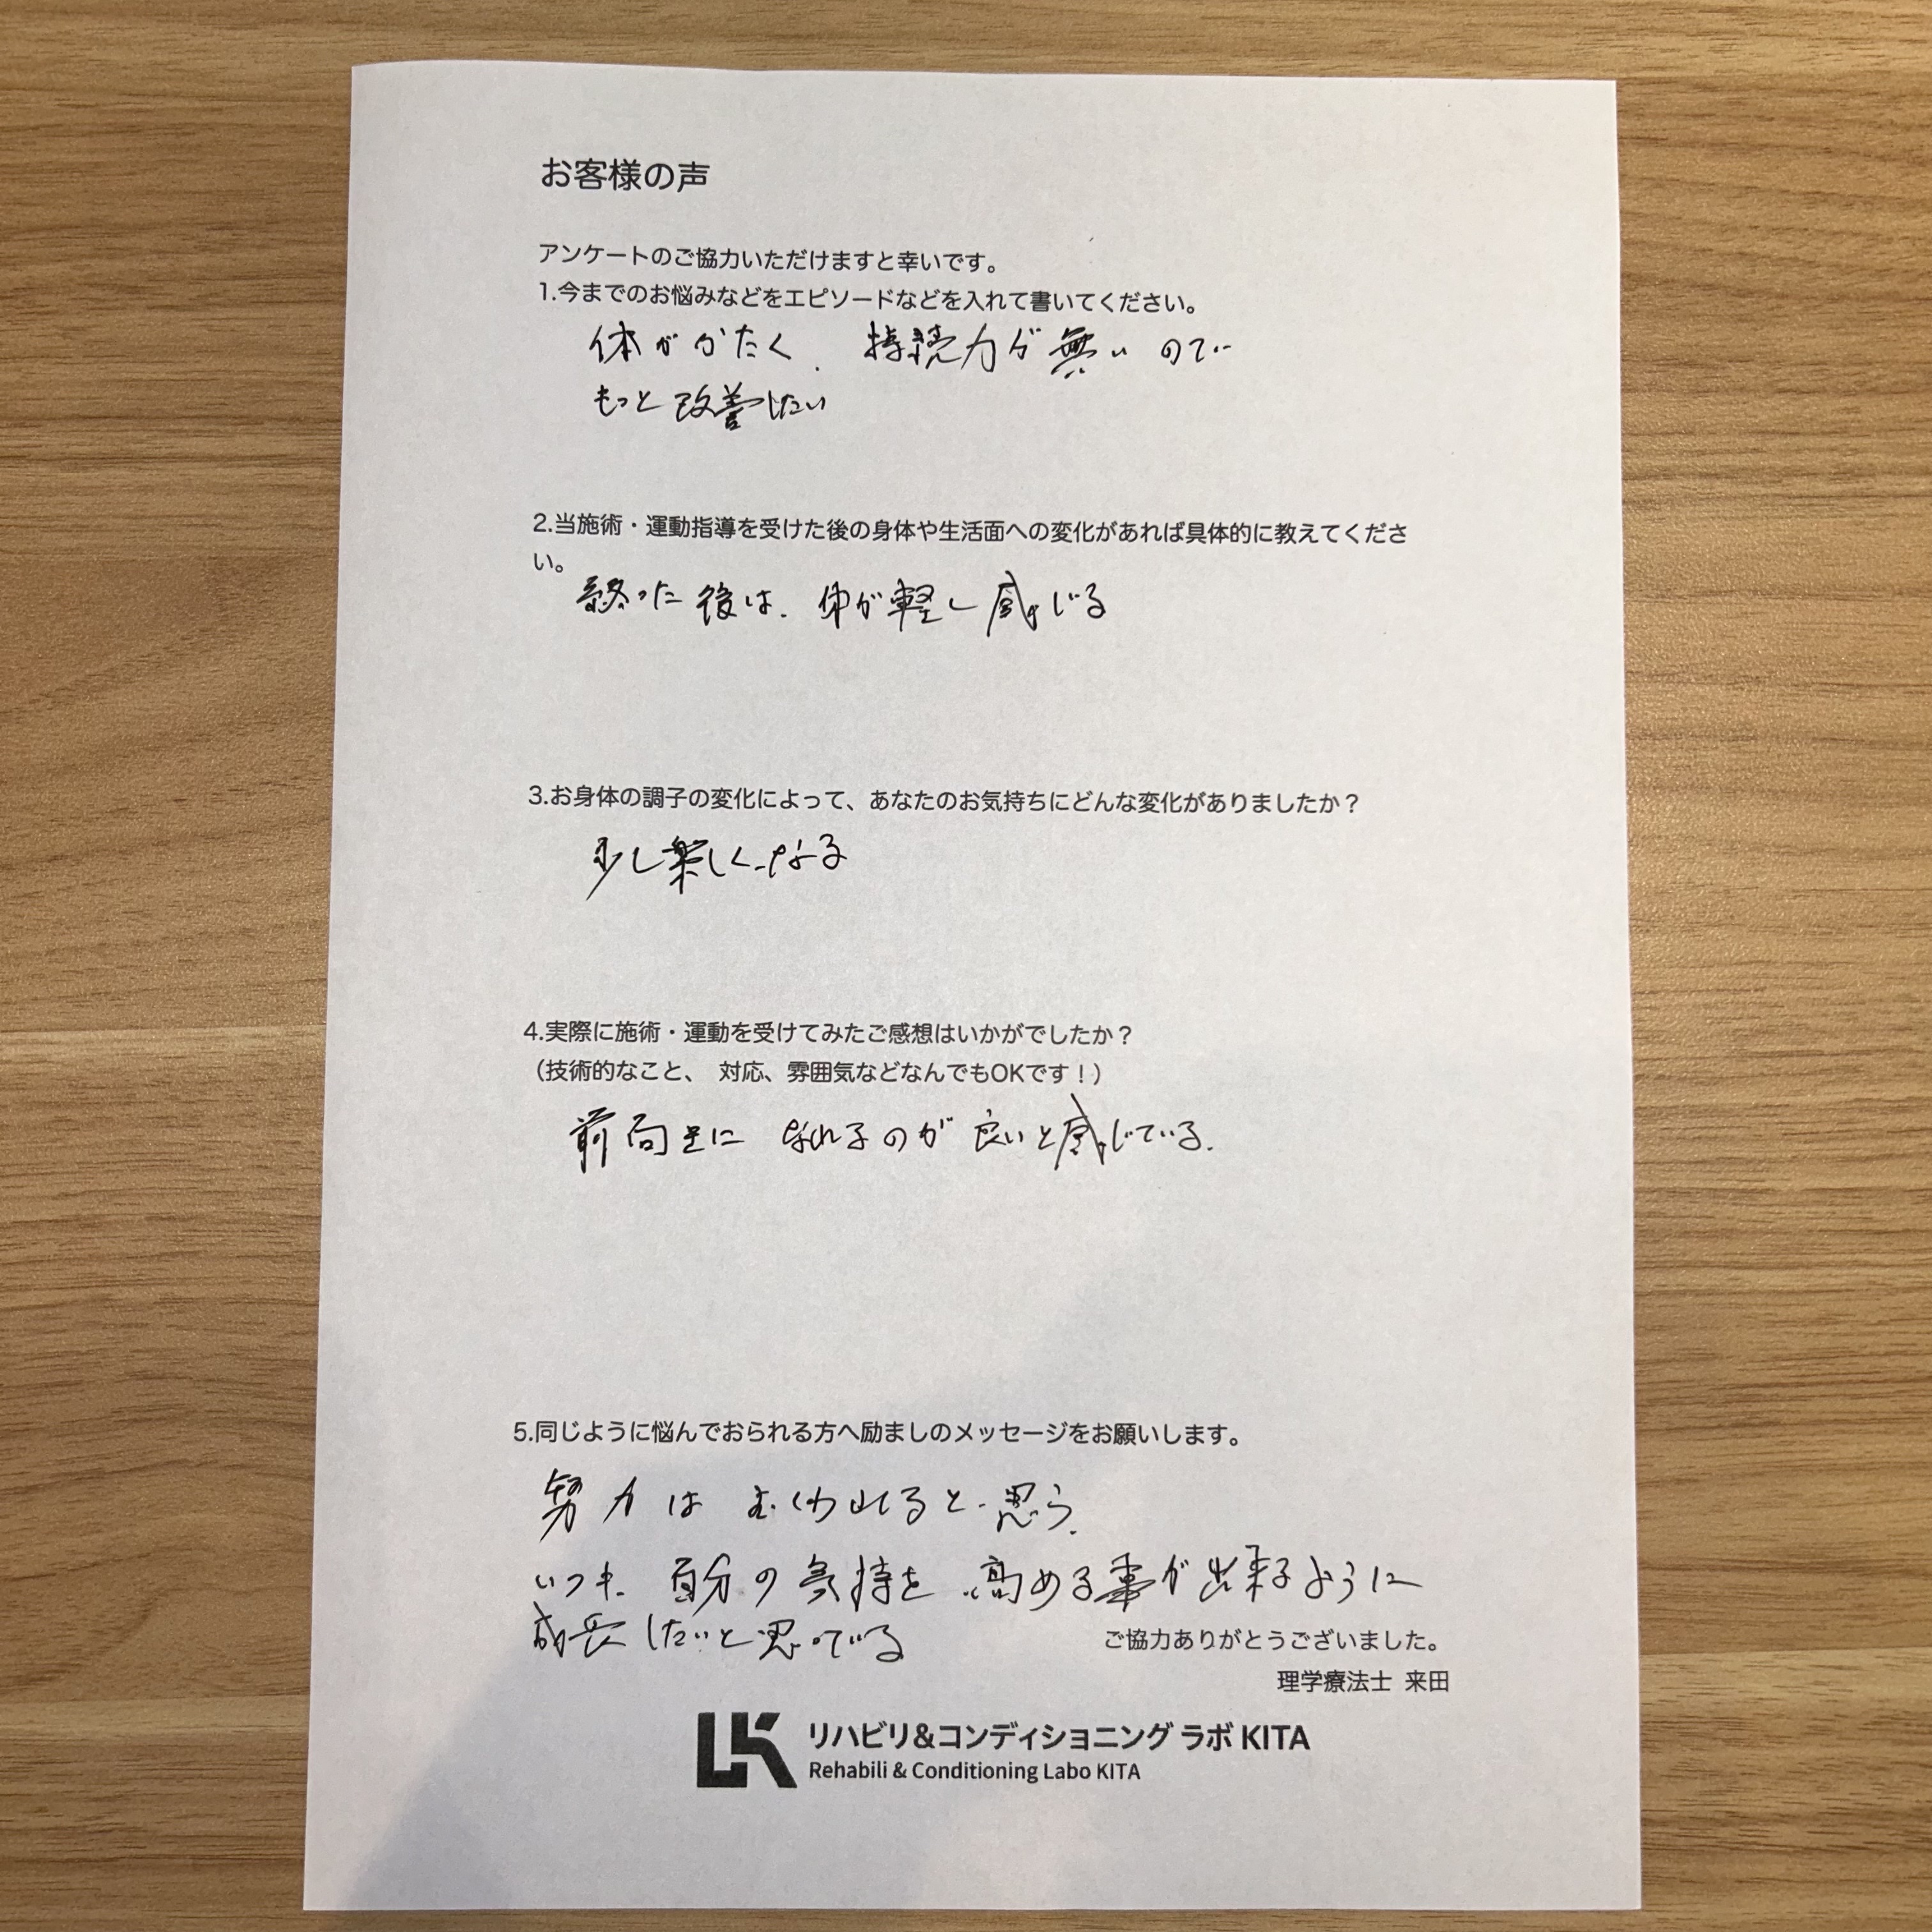 お客様の声
アンケートのご協力いただけますと幸いです。
1.今までのお悩みなどをエピソードなどを入れて書いてください。
体がかたく、持続力が無いので
もっと改善したい
2.当施術・運動指導を受けた後の身体や生活面への変化があれば具体的に教えてくださ
い。
終った後は、体が軽く感じる
3.お身体の調子の変化によって、あなたのお気持ちにどんな変化がありましたか？
少し楽しくなる
4.実際に施術・運動を受けてみたご感想はいかがでしたか？
（技術的なこと、 対応、雰囲気などなんでもOKです！）
前向きになれるのが良いと感じている。
5.同じように悩んでおられる方へ励ましのメッセージをお願いします。
努力はむくわれると思う。
いつも、自分の気持を高める事が出来るように
成長したいと思っている
ご協力ありがとうございました。
理学療法士 来田
リハビリ&コンディショニング ラボ KITA
Rehabili & Conditioning Labo KITA